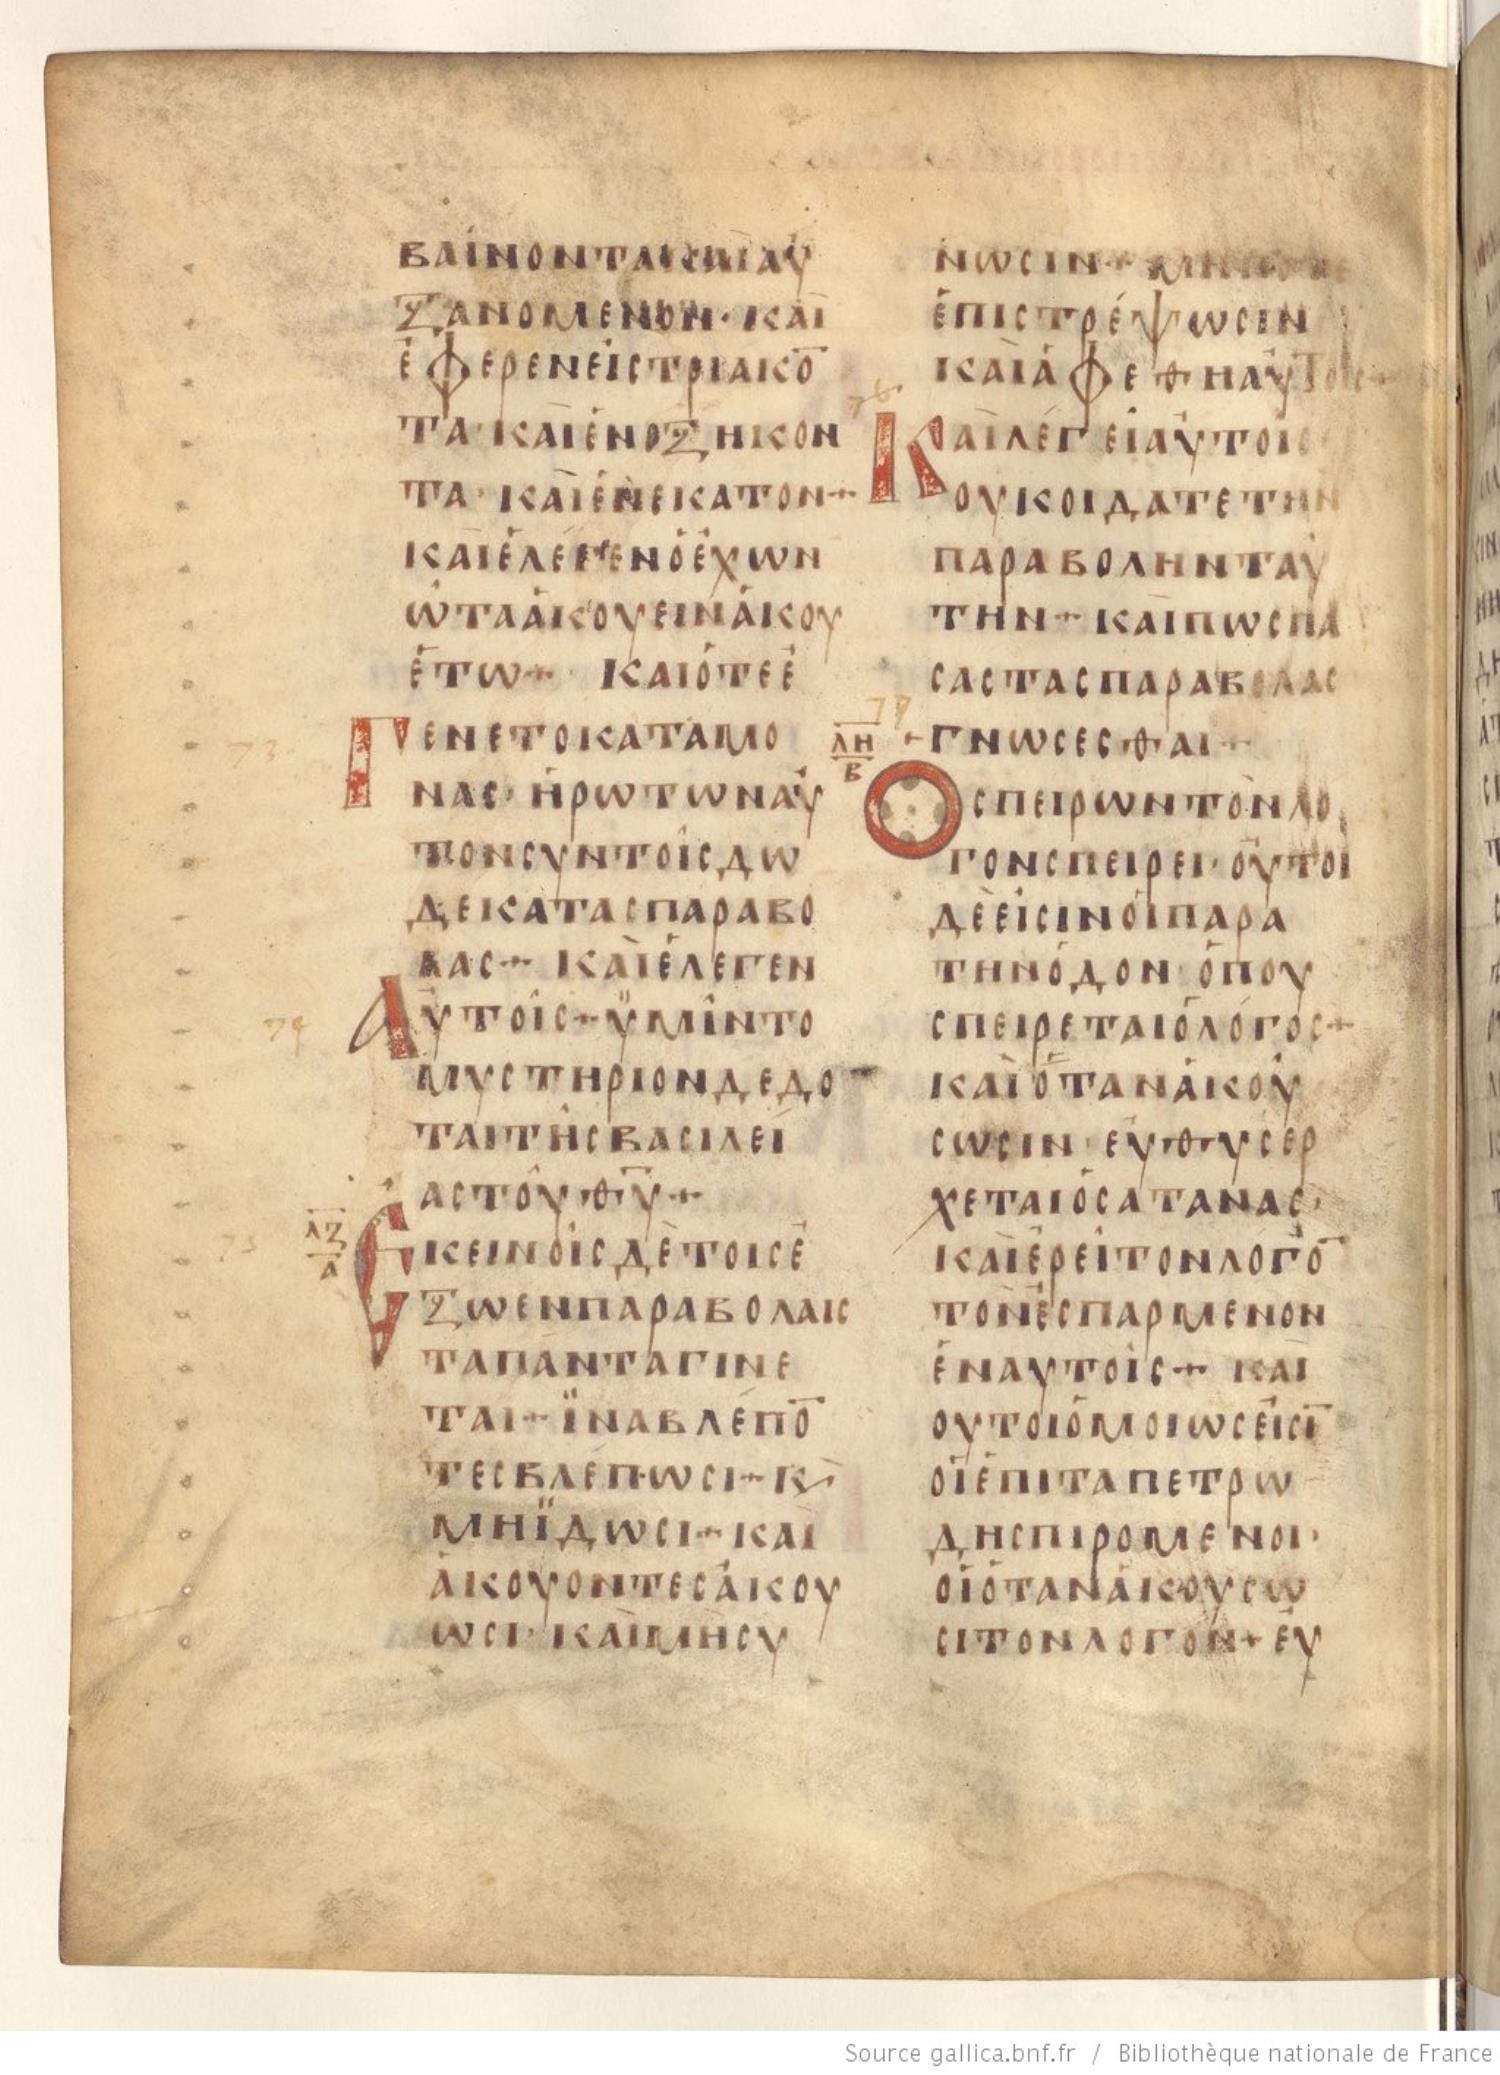 ΒΑΙΝΟΝΤΑ ΚΑΙ ΑΥ
ΞΑΝΟΜΕΝΟΝ· ΚΑΙ
ΕΦΕΡΕΝ ΕΙΣ ΤΡΙΑΚΟ̅
ΤΑ· ΚΑΙ ΕΝ ΟΞΗΚΟΝ
ΤΑ· ΚΑΙ ΕΝ ΕΚΑΤΟΝ+
ΚΑΙ ΕΛΕΓΕΝ Ο ΕΧΩΝ
ΩΤΑ ΑΚΟΥΕΙΝ ΑΚΟΥ
ΕΤΩ+ ΚΑΙ ΟΤΕ Ε
73 ΓΕΝΕΤΟ ΚΑΤΑ ΜΟ
ΝΑΣ· ΗΡΩΤΩΝ ΑΥ
ΤΟΝ ΣΥΝ ΤΟΙΣ ΔΩ
ΔΕΚΑ ΤΑΣ ΠΑΡΑΒΟ
ΛΑΣ+ ΚΑΙ ΕΛΕΓΕΝ
74 ΑΥΤΟΙΣ+ ΥΜΙΝ ΤΟ
ΜΥΣΤΗΡΙΟΝ ΔΕΔΟ
ΤΑΙ ΤΗΣ ΒΑΣΙΛΕΙ
ΑΣ ΤΟΥ Θ̅Υ̅+
75 ΛΖ Α ΕΚΕΙΝΟΙΣ ΔΕ ΤΟΙΣ Ε
ΞΩ ΕΝ ΠΑΡΑΒΟΛΑΙΣ
ΤΑ ΠΑΝΤΑ ΓΙΝΕ
ΤΑΙ+ ΪΝΑ ΒΛΕΠΟ̅
ΤΕΣ ΒΛΕΠΩΣΙ+ Κ
ΜΗ ΪΔΩΣΙ+ ΚΑΙ
ΑΚΟΥΟΝΤΕΣ ΑΚΟΥ
ΩΣΙ· ΚΑΙ ΜΗ ΣΥ
ΝΩΣΙΝ+
ΕΠΙΣΤΡΕΨΩΣΙΝ
ΚΑΙ ΑΦΕΘΗ ΑΥΤΟΙΣ+
76 ΚΑΙ ΛΕΓΕΙ ΑΥΤΟΙΣ
ΟΥΚ ΟΙΔΑΤΕ ΤΗΝ
ΠΑΡΑΒΟΛΗΝ ΤΑΥ
ΤΗΝ+ ΚΑΙ ΠΩΣ ΠΑ
ΣΑΣ ΤΑΣ ΠΑΡΑΒΟΛΑΣ
ΓΝΩΣΕΣΘΑΙ+
77 ΛΗ Β Ο ΣΠΕΙΡΩΝ ΤΟΝ ΛΟ
ΓΟΝ ΣΠΕΙΡΕΙ· ΟΥΤΟΙ
ΔΕ ΕΙΣΙΝ ΟΙ ΠΑΡΑ
ΤΗΝ ΟΔΟΝ· ΟΠΟΥ
ΣΠΕΙΡΕΤΑΙ Ο ΛΟΓΟΣ+
ΚΑΙ ΟΤΑΝ ΑΚΟΥ
ΣΩΣΙΝ· ΕΥΘΥΣ ΕΡ
ΧΕΤΑΙ Ο ΣΑΤΑΝΑΣ·
ΚΑΙ ΕΡΕΙ ΤΟΝ ΛΟΓΟ̅
ΤΟΝ ΕΣΠΑΡΜΕΝΟΝ
ΕΝ ΑΥΤΟΙΣ+ ΚΑΙ
ΟΥΤΟΙ ΟΜΟΙΩΣ ΕΙΣΙ̅
ΟΙ ΕΠΙ ΤΑ ΠΕΤΡΩ
ΔΗ ΣΠΙΡΟΜΕΝΟΙ·
ΟΙ ΟΤΑΝ ΑΚΟΥΣΩ
ΣΙ ΤΟΝ ΛΟΓΟΝ+ ΕΥ
Source gallica.bnf.fr / Bibliothèque nationale de France